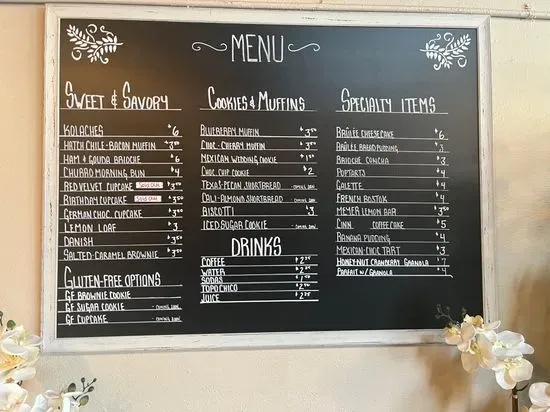 MENU
SWEET & SAVORY
KOLACHES $6
HATCH CHILE-BACON MUFFIN $3.50
HAM & GOUDA BRIOCHE $6
CHURRO MORNING BUN $4
RED VELVET CUPCAKE SOLD OUT $3.50
BIRTHDAY CUPCAKE SOLD OUT $3.50
GERMAN CHOC. CUPCAKE $3.50
LEMON LOAF $3
DANISH $3.50
SALTED-CARAMEL BROWNIE $3.50
GLUTEN-FREE OPTIONS
GF BROWNIE COOKIE
GF SUGAR COOKIE - COMING SOON!
GF CUPCAKE - COMING SOON!
COOKIES & MUFFINS
BLUEBERRY MUFFIN $3.50
CHOC.-CHERRY MUFFIN $3.50
MEXICAN WEDDING COOKIE
CHOC. CHIP COOKIE $2
TEXAS-PECAN SHORTBREAD - COMING SOON!
CALI-ALMOND SHORTBREAD - COMING SOON!
BISCOTTI $3
ICED SUGAR COOKIE - COMING SOON!
DRINKS
COFFEE $2.75
WATER
SODAS
TOPO CHICO
JUICE $2.75
SPECIALTY ITEMS
BRÛLÉE CHEESECAKE $6
BRÛLÉE BREAD PUDDING $3
BRIOCHE CONCHA $3
POPTARTS $4
GALETTE $4
FRENCH BOSTOK $4
MEYER LEMON BAR $3
CINN. COFFEE CAKE $5
BANANA PUDDING $4
MEXICAN-CHOC TART $3
HONEY-NUT CRANBERRY GRANOLA $7
PARFAIT W/ GRANOLA $4